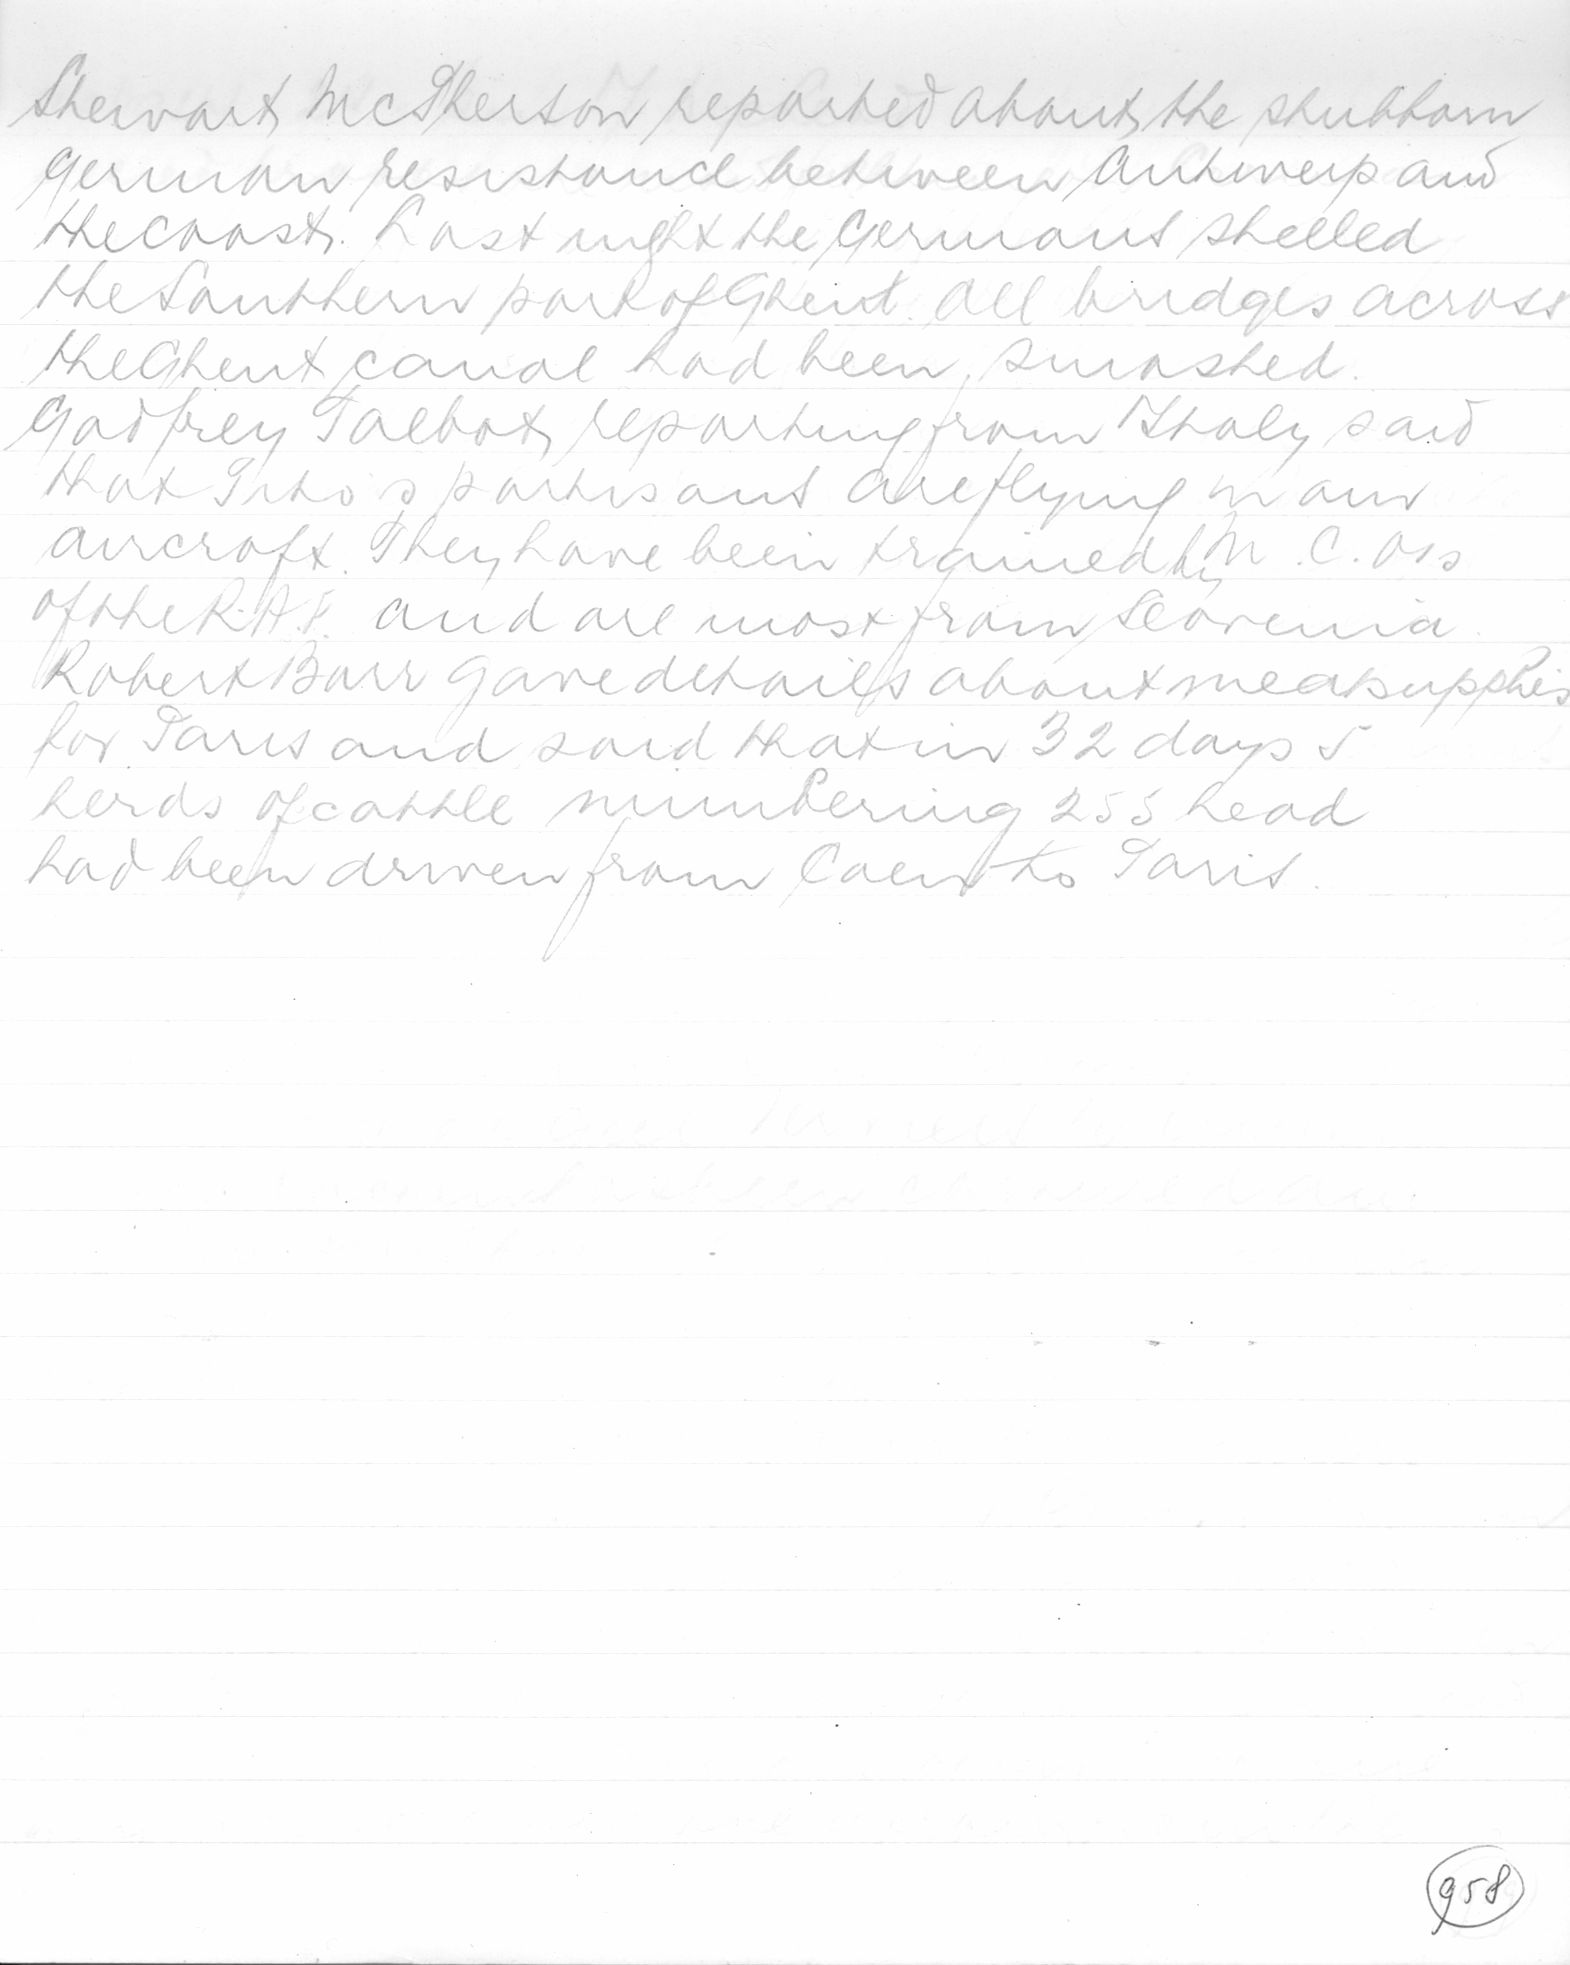 Stewart McPherson reported about the stubborn
German resistance between Antwerp and
the coast. Last night the Germans shelled
the Southern part of Ghent. All bridges across
the Ghent canal had been smashed.
Godfrey Talbot, reporting from Italy said
that Tito's partisans are flying in our
aircraft. They have been trained by N.C.O.s
of the R.A.F. and are most from Slovenia.
Robert Barr gave details about meat supplies
for Paris and said that in 32 days 5
herds of cattle numbering 255 head
had been driven from Caen to Paris.
958